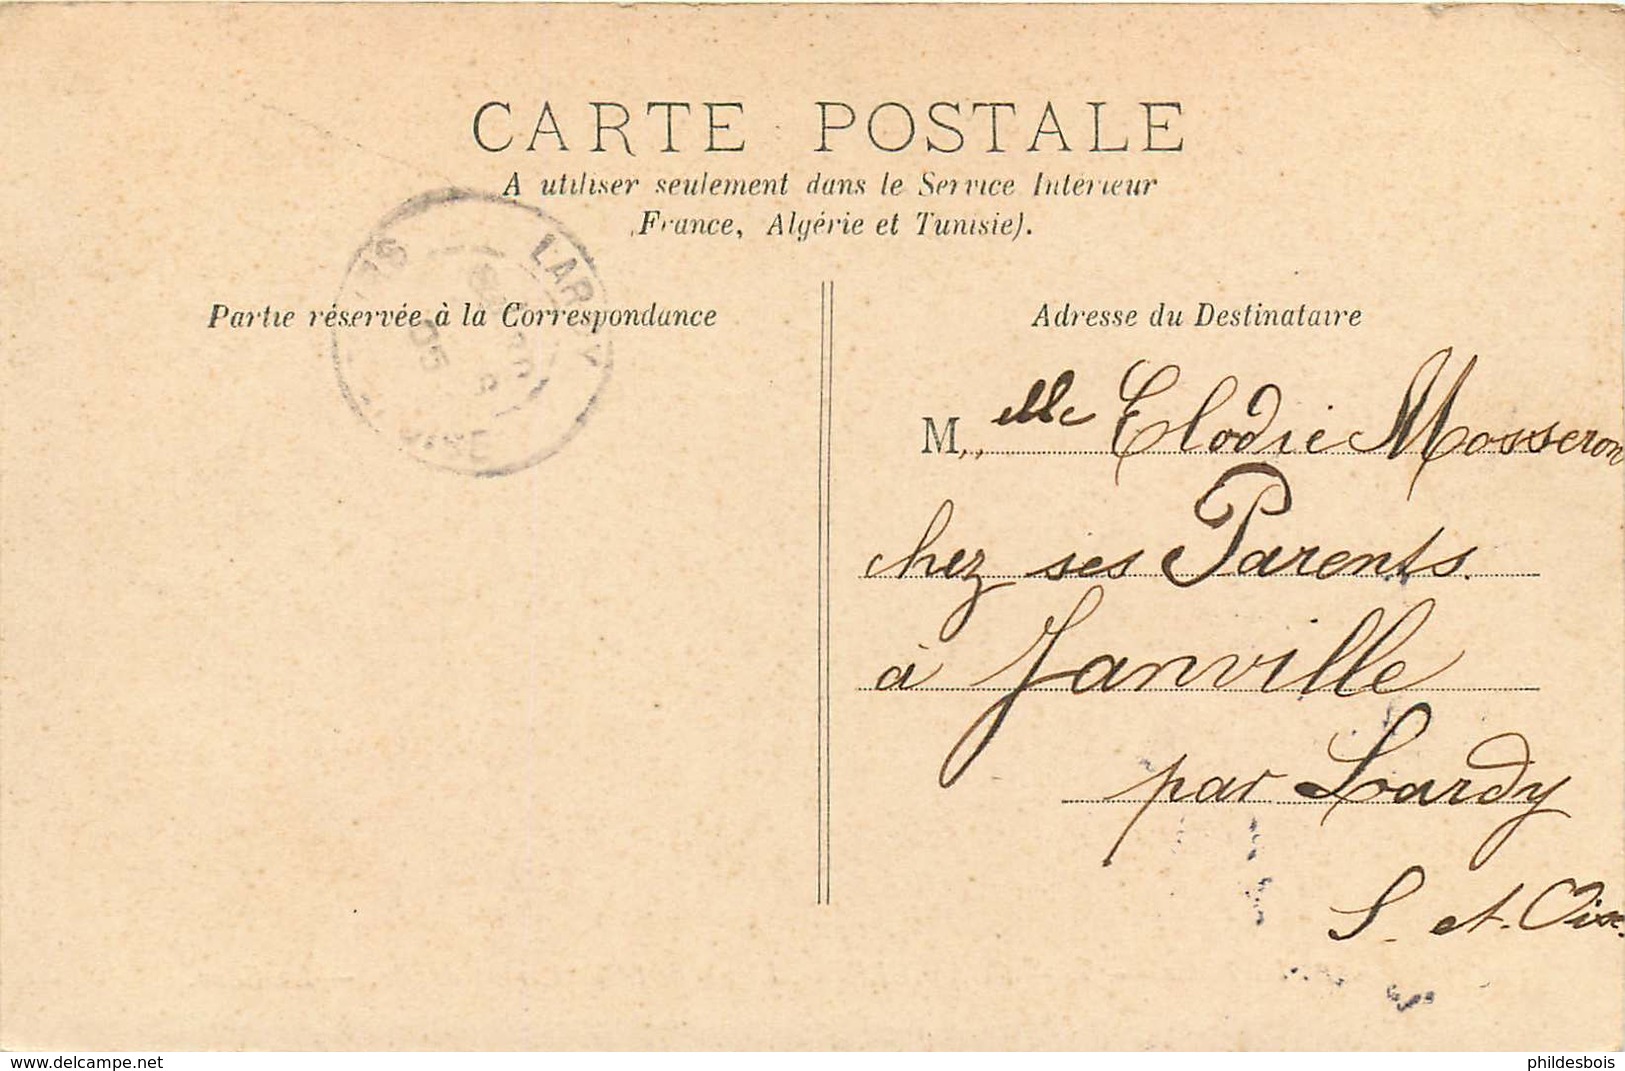 CARTE POSTALE
A utiliser seulement dans le Service Intérieur
(France, Algérie et Tunisie).
Partie réservée à la Correspondance
Adresse du Destinataire
LARDY
05
M elle Elodie Mosseron
chez ses Parents
à Janville
par Lardy
S. et Oise.
www.delcampe.net
phildesbois